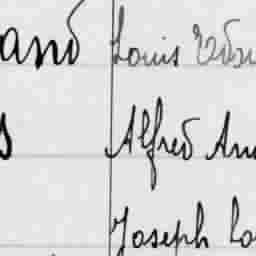 and Louis Edm
s Alfred An
Joseph Lo